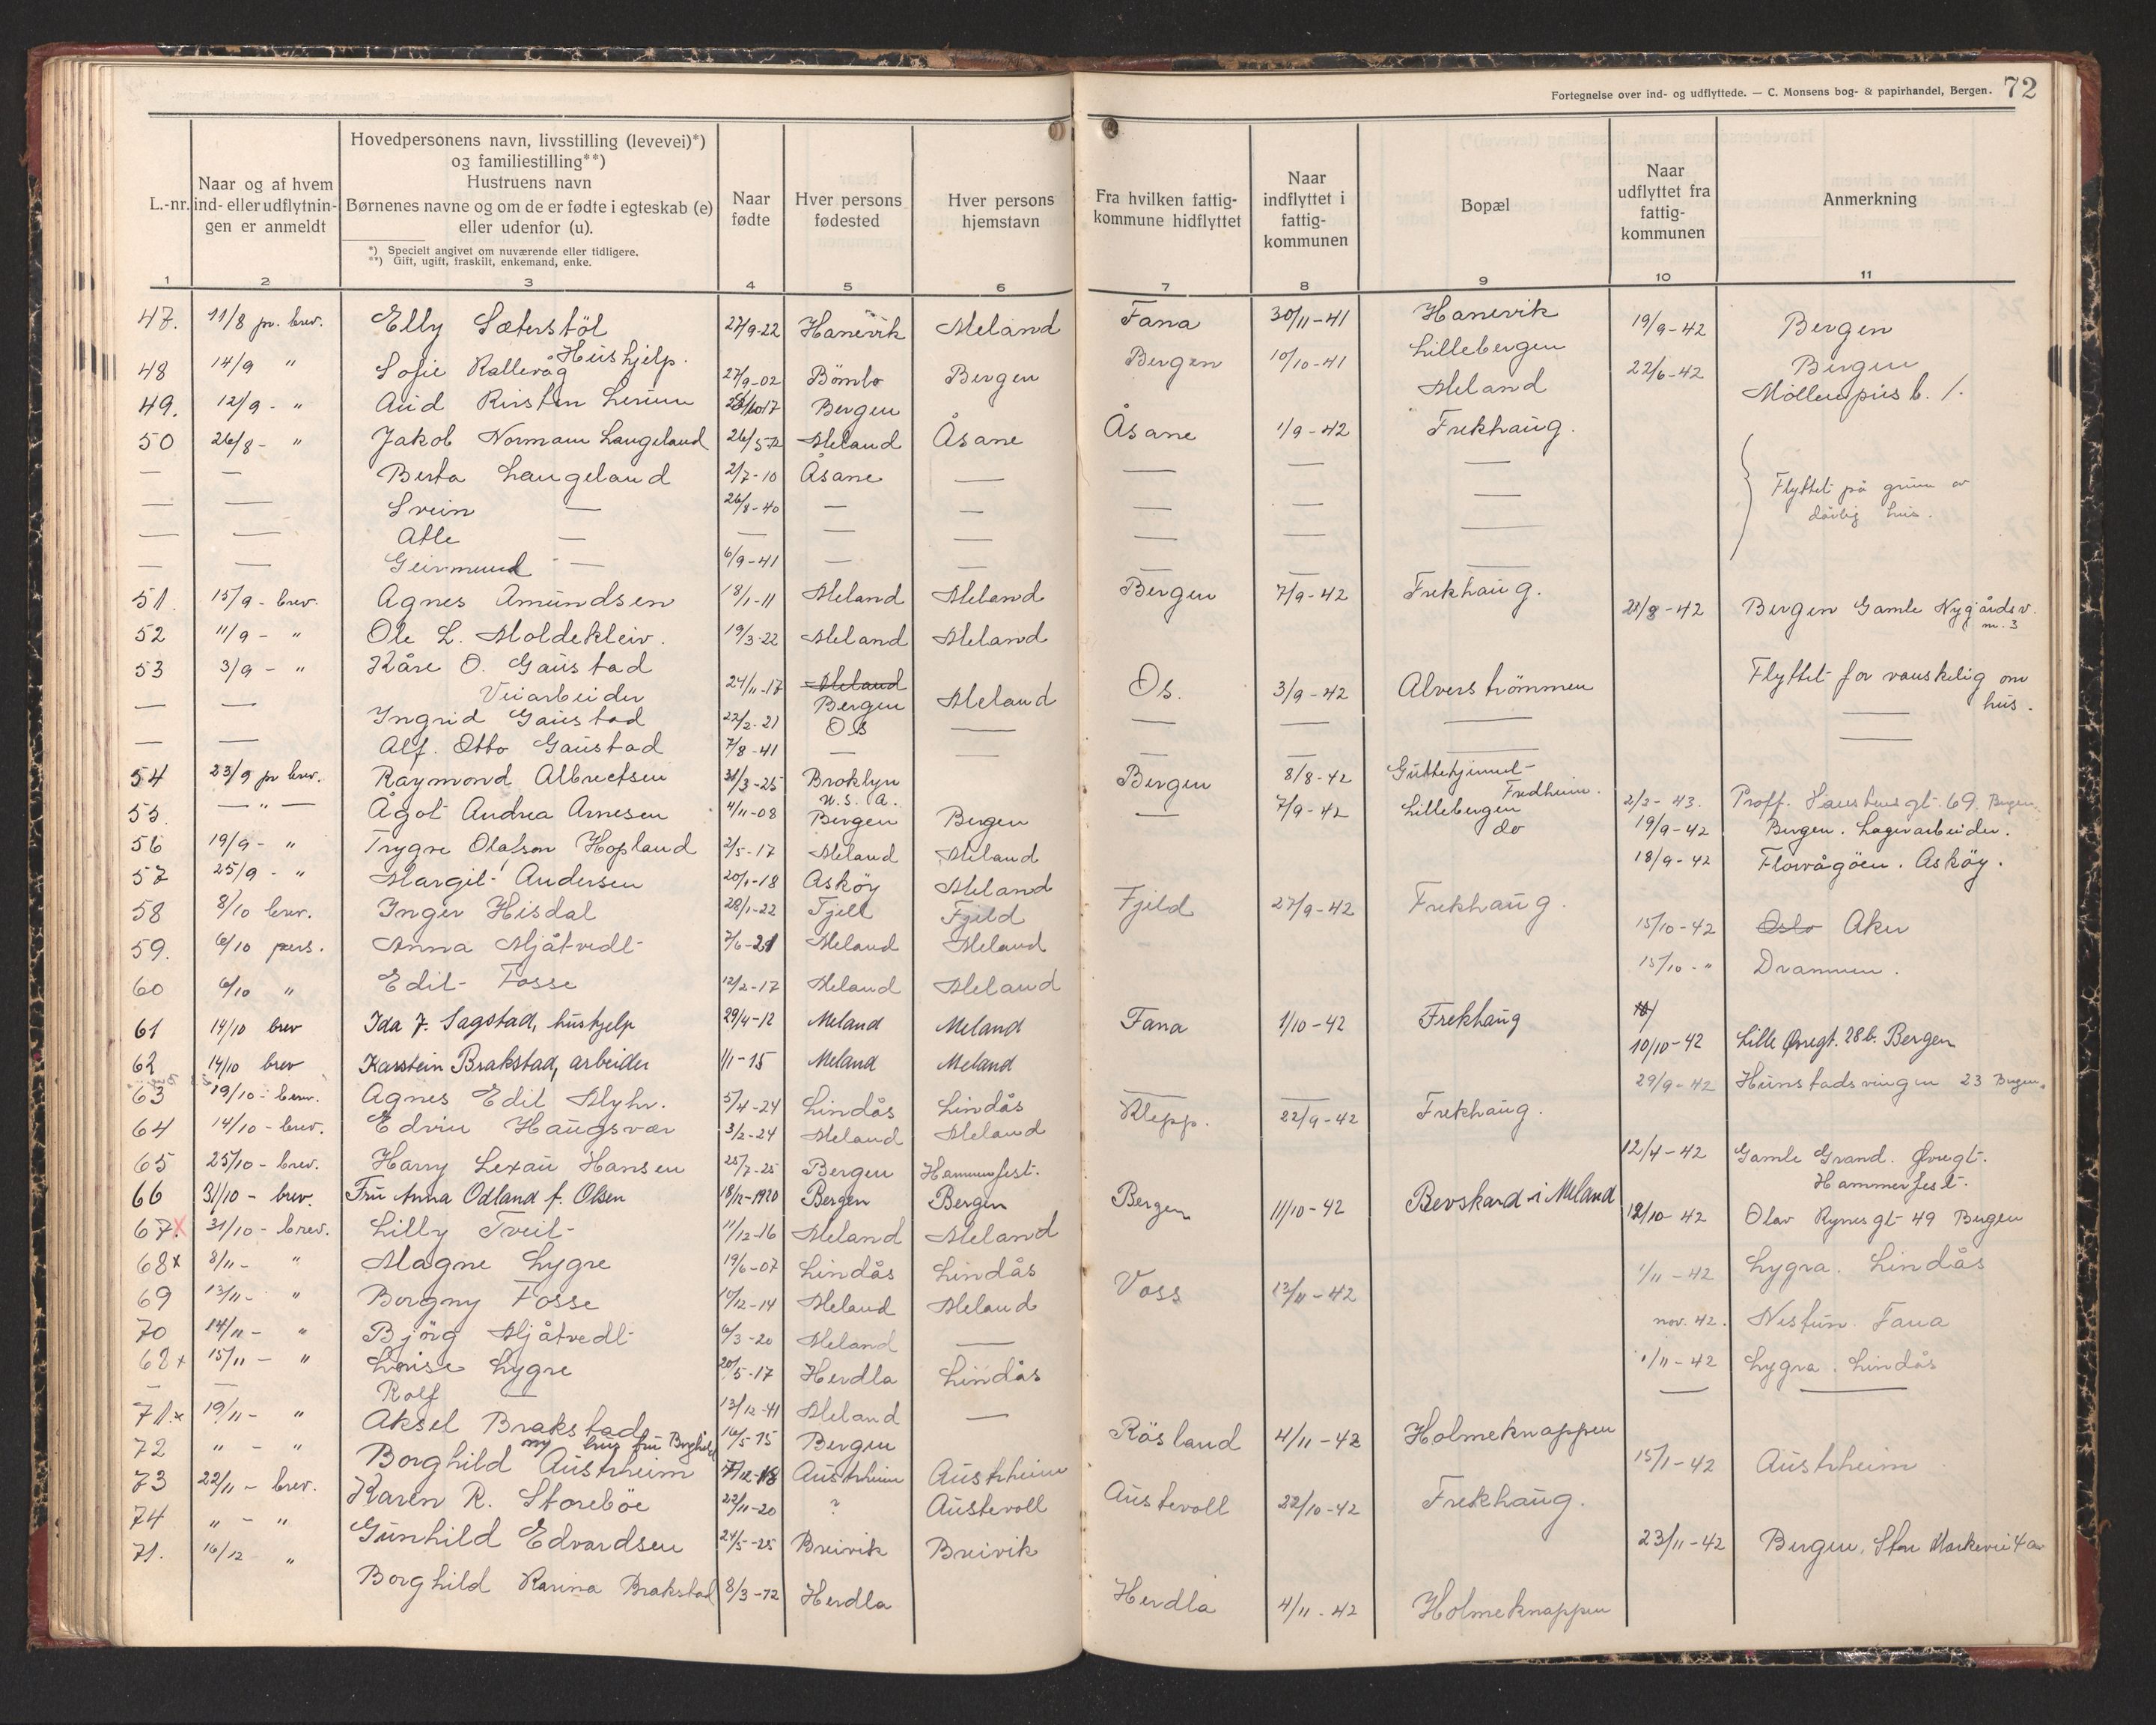 Fortegnelse over ind- og udflyttede. — C. Monsens bog- & papirhandel, Bergen. 72
L.-nr. Naar og af hvem ind- eller udflytningen er anmeldt
Hovedpersonens navn, livsstilling (levevei)*)
og familiestilling**)
Hustruens navn
Børnenes navne og om de er fødte i egteskab (e)
eller udenfor (u).
*) Specielt angivet om nuværende eller tidligere.
**) Gift, ugift, fraskilt, enkemand, enke.
Naar fødte
Hver persons fødested
Hver persons hjemstavn
Fra hvilken fattigkommune hidflyttet
Naar indflyttet i fattigkommunen
Bopæl
Naar udflyttet fra fattigkommunen
Anmerkning
1 2 3 4 5 6 7 8 9 10 11
47. 11/8 pr. brev. Elly Sæterstöl 27/9-22 Hanevik Meland Fana 30/11-41 Hanevik 19/9-42 Bergen
Hushjelp.
48 14/9 " Sofie Rallevåg 27/9-02 Bömlo Bergen Bergen 10/10-41 Lillebergen 22/6-42 Bergen
49. 12/9 - " Aud Kirsten Lerum Bergen Meland Möllenpris b. 1.
50 26/8 - " Jakob Normann Langeland 26/5-72 Meland Åsane Åsane 1/9-42 Frekhaug.
— — Berta Langeland 2/7-10 Åsane — — — —
— — Svein — 26/8-40 — — — — — Flyttet på grunn av
dårlig hus.
— — Atle — — — — — — —
— — Geirmund — 6/9-41 — — — — —
51. 15/9 - brev. Agnes Amundsen 18/1-11 Meland Meland Bergen 7/9-42 Frekhaug.
52 11/9 - " Ole L. Moldekleiv. 19/3-22 Meland Meland 21/8-42 Bergen Gamle Nygårdsv.
nr. 3
53 3/9 - " Kåre O. Gaustad 24/11-17 Meland
Veiarbeider Bergen Meland Os. 3/9-42 Alverströmmen Flyttet for vanskelig om
hus.
— — Ingrid Gaustad 22/2-21 Os — — — — —
— — Alf. Otto Gaustad 7/8-41 — — — — — —
54 23/9 pr brev. Raymond Albrectsen 31/3-25 Broklyn U.S.A. Bergen 8/8-42 Guttehjemmet
Fredheim.
55. — " — Ågot Andrea Arnesen 4/11-08 Bergen Bergen — 7/9-42 Lillebergen 2/2-43. Proff. Hansteensgt. 69. Bergen.
56 19/9 - " Trygve Olafson Hopland 2/5-17 Meland Meland do 19/9-42 Bergen. Lagerarbeider.
57 25/9 - " Margit Andersen 20/1-18 Asköy Meland 18/9-42 Florvågöen. Asköy.
58 8/10 brev. Inger Hisdal 28/1-22 Fjell Fjeld Fjeld 27/9-42 Frekhaug.
59. 6/10 pers. Anna Mjåtvedt 7/6-21 Meland Meland 15/10-42 Oslo Aker
60 6/10 " Edit Fosse 12/2-17 Meland Meland 15/10-" Drammen.
61 14/10 brev Ida J. Sagstad, hushjelp 29/4-12 Meland Meland Fana 1/10-42 Frekhaug
62 14/10 brev Karstein Brakstad, arbeider 1/1-15 Meland Meland 10/10-42 Lille Øvregt. 28b. Bergen
63 19/10 - brev. Agnes Edit Myhr. 5/4-24 Lindås Lindås 29/9-42 Hunstadsvingen 23 Bergen.
64 14/10 - brev. Edvin Haugsvær 3/2-24 Meland Meland Klepp. 22/9-42 Frekhaug.
65 25/10 - brev. Harry Lexau Hansen 25/7-25 Bergen Hammerfest. 12/4-42 Gamle Grand. Øvregt.
Hammerfest.
66 31/10 - brev. Fru Anna Odland f. Olsen 18/12-1920 Bergen Bergen Bergen 11/10-42 Bevskard i Meland
67. x 31/10 - brev. Lilly Tveit 11/12-16 Meland Meland 12/10-42 Olav Ryesgt 49 Bergen
68 x 8/11 - " Magne Lygre 19/6-07 Lindås Lindås 1/11-42 Lygra. Lindås
69 13/11 - " Borgny Fosse 10/12-14 Meland Meland Voss 13/11-42
70 14/11 - " Björg Mjåtvedt 6/3-20 Meland — nov. 42. Nestun. Fana
68 x 15/11 - " Louise Lygre 20/5-17 Herdla Lindås 1/11-42 Lygra. Lindås
— — Rolf — 13/12-41 Meland — — —
71. x 19/11 - " Aksel Brakstad 16/5-15 Bergen Rösland 4/11-42 Holmeknappen
72 " - " Borghild Austrheim 7/12-18 Austrheim Austrheim 15/1-42 Austrheim
73 22/11 - brev. Karen R. Storeböe 22/11-20 ? Austevoll Austevoll 22/10-42 Frekhaug.
74 " - " Gunhild Edvardsen 24/5-25 Breivik Breivik 23/11-42 Bergen, Store Markevei 4a
71. 16/12 " Borghild Karina Brakstad 8/3-12 Herdla Herdla 4/11-42 Holmeknappen